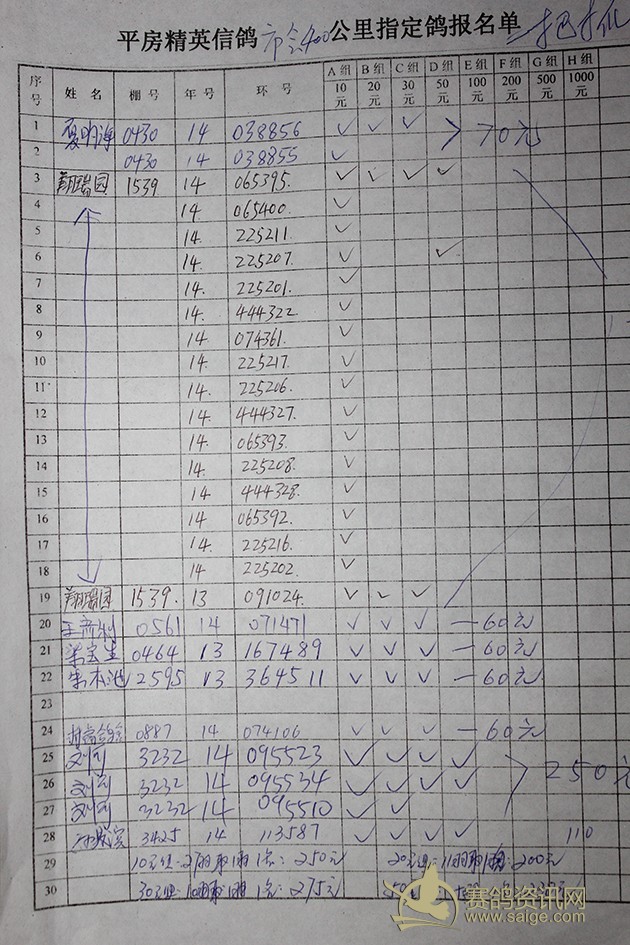 平房精英信鸽市会400公里指定鸽报名单 一把抓
序号 姓名 棚号 年号 环号 A组10元 B组20元 C组30元 D组50元 E组100元 F组200元 G组500元 H组1000元
1 0430 14 038856 ✓ ✓ ✓ 70元
2 0430 14 038855 ✓
3 翔瑞园 1539 14 065395. ✓ ✓ ✓ ✓
4 14. 065400. ✓
5 14. 225211. ✓
6 14. 225207. ✓ ✓
7 14. 225201. ✓
8 14. 444322 ✓
9 14. 074361. ✓
10 14. 225217. ✓
11 14. 225206. ✓
12 14. 444327. ✓
13 14. 065393. ✓
14 14. 225208. ✓
15 14 444328. ✓
16 14 065392. ✓
17 14. 225216. ✓
18 14 225202. ✓
19 翔瑞园 1539. 13 091024. ✓ ✓ ✓
20 0561 14 071471 ✓ ✓ ✓ —60元
21 0464 13 167489 ✓ ✓ ✓ —60元
22 2595 13 364511 ✓ ✓ ✓ —60元
23
24 0887 14 074106 ✓ ✓ ✓ —60元
25 刘 3232 14 095523 ✓ ✓ ✓ ✓
26 刘 3232 14 095534 ✓ ✓ ✓ ✓ 250元
27 刘 3232 14 095510 ✓ ✓
28 3425 14 113587 ✓ ✓ ✓ ✓ 110
29 10元组: 250元 20元组: 200元
30 30元组: 275元
赛鸽资讯网
www.saige.com